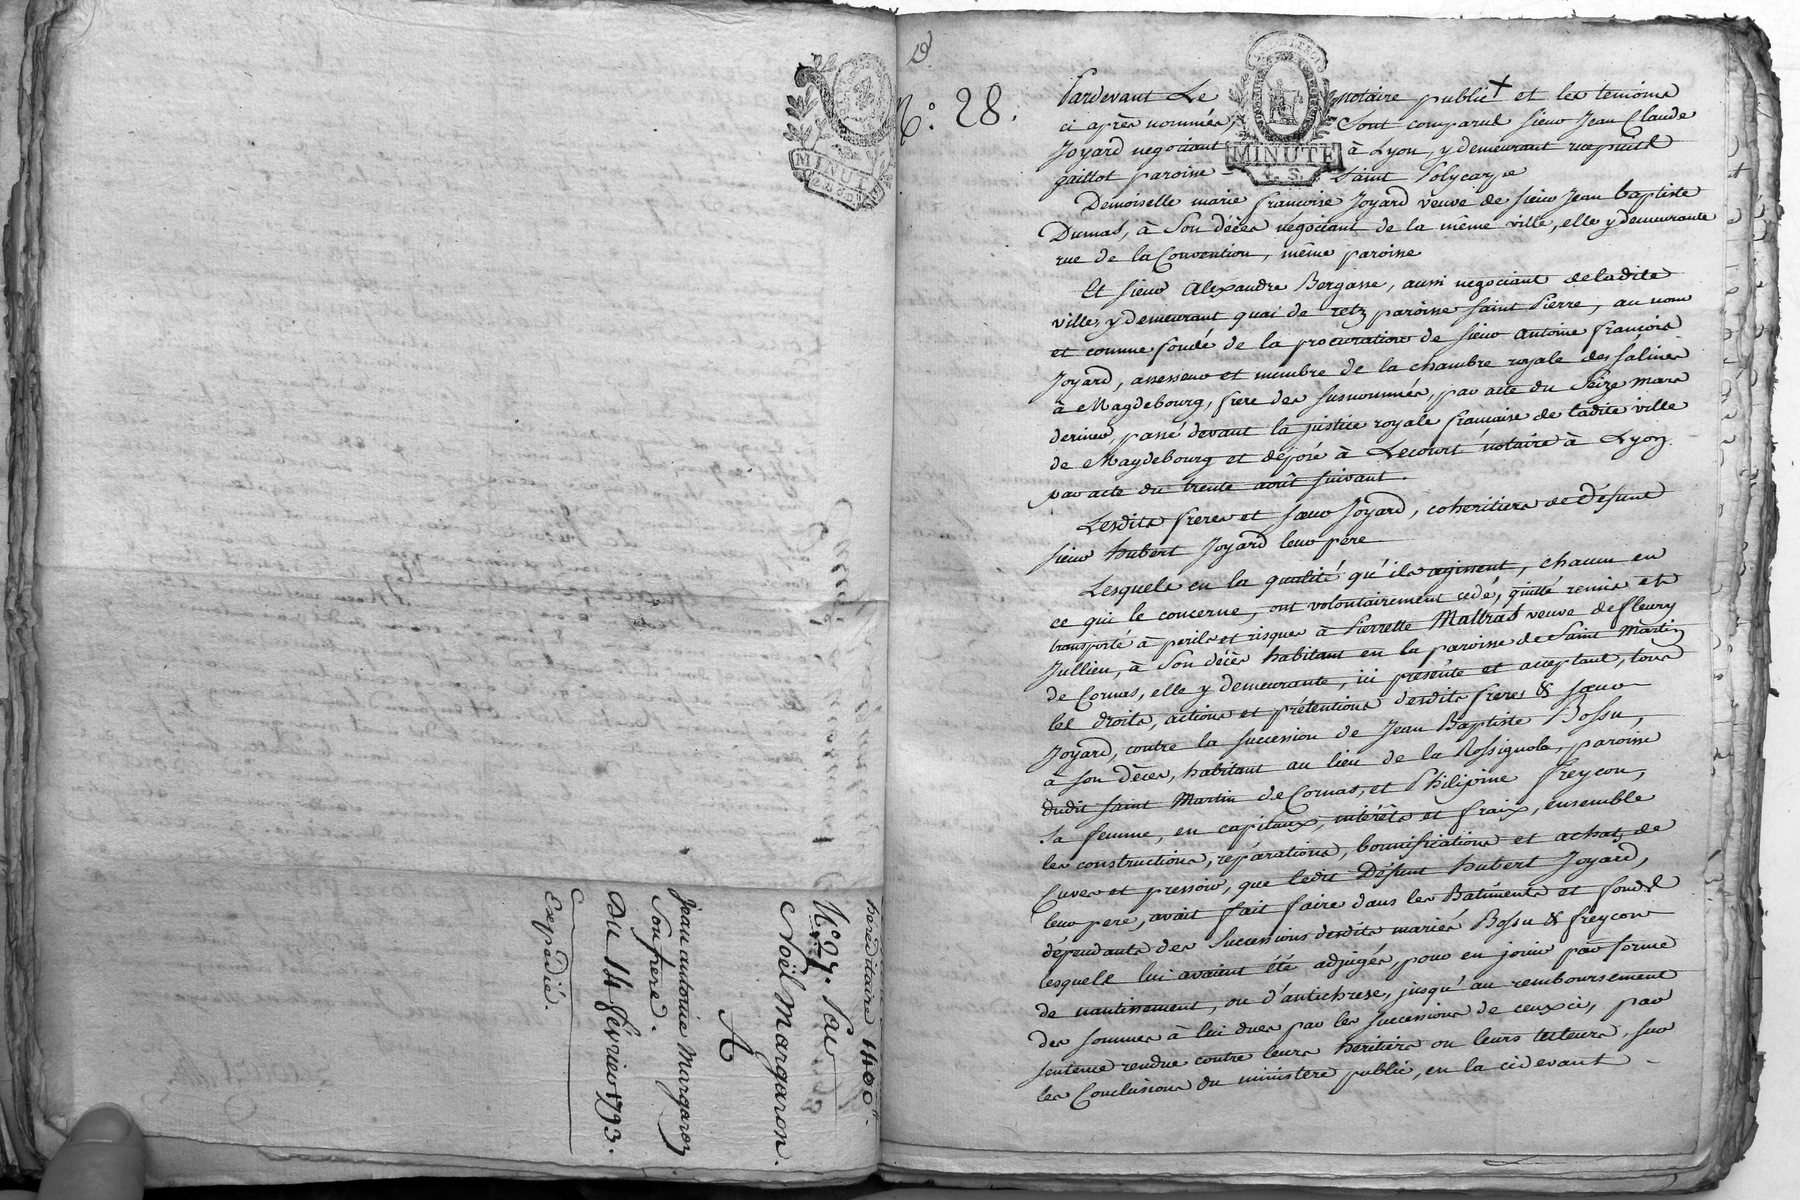 héréditaire 1400ᵗᵗ.
N.° 27. Par
Noël Margaron.
A
Jean antoine Margaron
Son frere.
Du 14 février 1793.
Expédié.
N.° 28.
MINUTE
MINUTE
4. S.
Pardevant Le notaire public + et les temoins
ci après nommés, Sont comparus sieur Jean Claude
Joyard negociant à Lyon, y demeurant rue puits
gaillot paroisse Saint Polycarpe
Demoiselle marie francoise Joyard veuve de sieur Jean baptiste
Dumas, à Son décès négociant de la même ville, elle y demeurante
rue de la Convention, même paroisse
Et sieur Alexandre Bergasse, aussi negociant de ladite
ville, y demeurant quai de retz paroisse saint Pierre, au nom
et comme fondé de la procuration de sieur antoine françois
Joyard, assesseur et membre de la chambre royale des salines
à Magdebourg, frere des susnommés, par acte du Seize mars
dernier, passé devant la justice royale francaise de ladite ville
de Magdebourg et déposé à Lecourt notaire à Lyon
par acte du trente août suivant.
Lesdits freres et sœur Joyard, coheritiers de Défunt
sieur hubert Joyard leur pere
Lesquels en la qualité qu'ils agissent, chacun en
ce qui le concerne, ont volontairement cedé, quitté remis et
transporté à perils et risques à Pierrette Maltras veuve de fleury
Jullien, à Son décès habitant en la paroisse de Saint Martin
de Cornas, elle y demeurante, ici présente et acceptant, tous
les droits, actions et prétentions desdits freres & sœur
Joyard, contre la succession de Jean Baptiste Bossu,
à son décès, habitant au lieu de la Rossignola, paroisse
dudit saint Martin de Cornas, et Philipine freycon,
sa femme, en capitaux, intérêts et fraix, ensemble
les constructions, réparations, bonnifications et achat, de
Cuves et pressoir, que ledit Défunt hubert Joyard,
leur pere, avait fait faire dans les Batiments et fonds
dépendants des Successions desdits mariés Bossu & freycon
lesquels lui avaient été adjugés, pour en jouir par forme
de nantissement, ou d'antichrese, jusqu'au remboursement
des sommes à lui dues par les successions de ceux ci, par
sentence rendue contre leurs heritiers ou leurs tuteurs, sur
les Conclusions du ministere public, en la cidevant